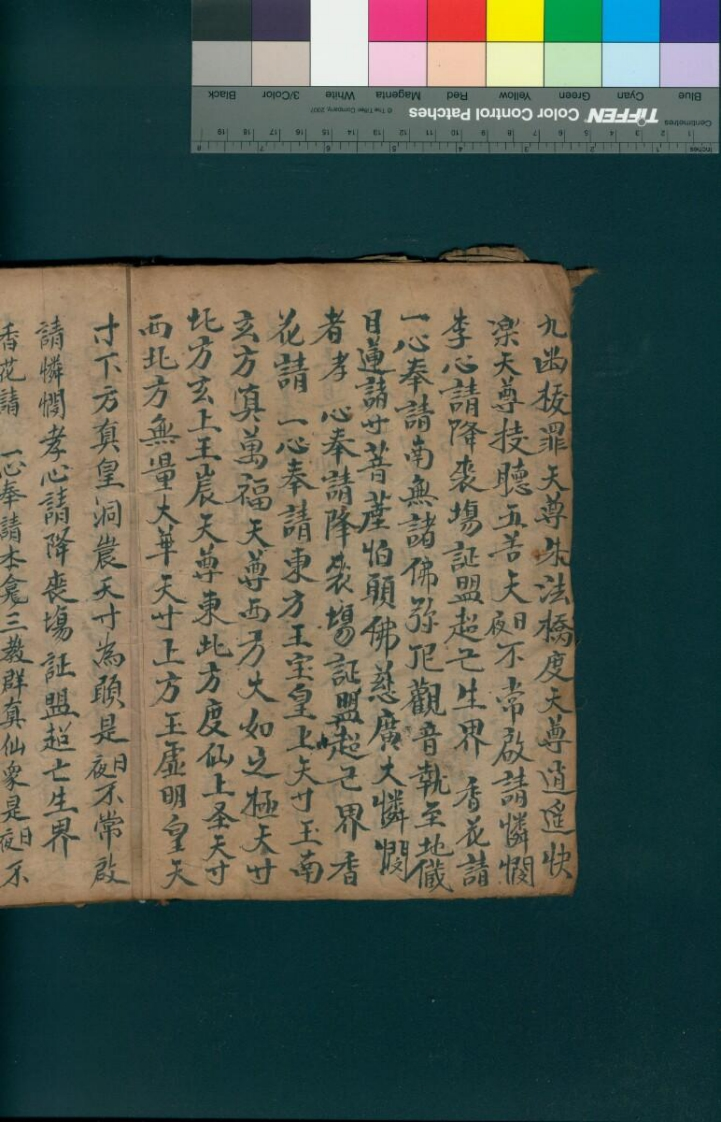 九幽拔罪天尊朱法橋度天尊逍遥快
楽天尊技聽五苦天夜日不常啟請憐憫
李心請降丧場証盟超亡生界 香花請
一心奉請南無諸佛弥陀觀音執至地儀
目蓮諸廿菩薩怕頭佛慈廣大憐憫
者孝心奉請降丧場証盟超亡界香
花請 一心奉請東方玉宝皇上天寸玉南
玄方真萬福天尊西方大如之極天寸
北方玄上王宸天尊東北方度仙上圣天寸
西北方無量大華天寸上方玉虚明皇天
寸下方真皇洞宸天寸為頭是夜日不常啟
請憐憫孝心請降喪場証盟超亡生界
香花請 一心奉請本龛三教群真仙衆是夜日不
Blue
Cyan
Green
Yellow
Red
Magenta
White
3/Color
Black
TIFFEN Color Control Patches
© The Tiffen Company, 2007
Centimetres
1 2 3 4 5 6 7 8 9 10 11 12 13 14 15 16 17 18 19
Inches
1 2 3 4 5 6 7 8